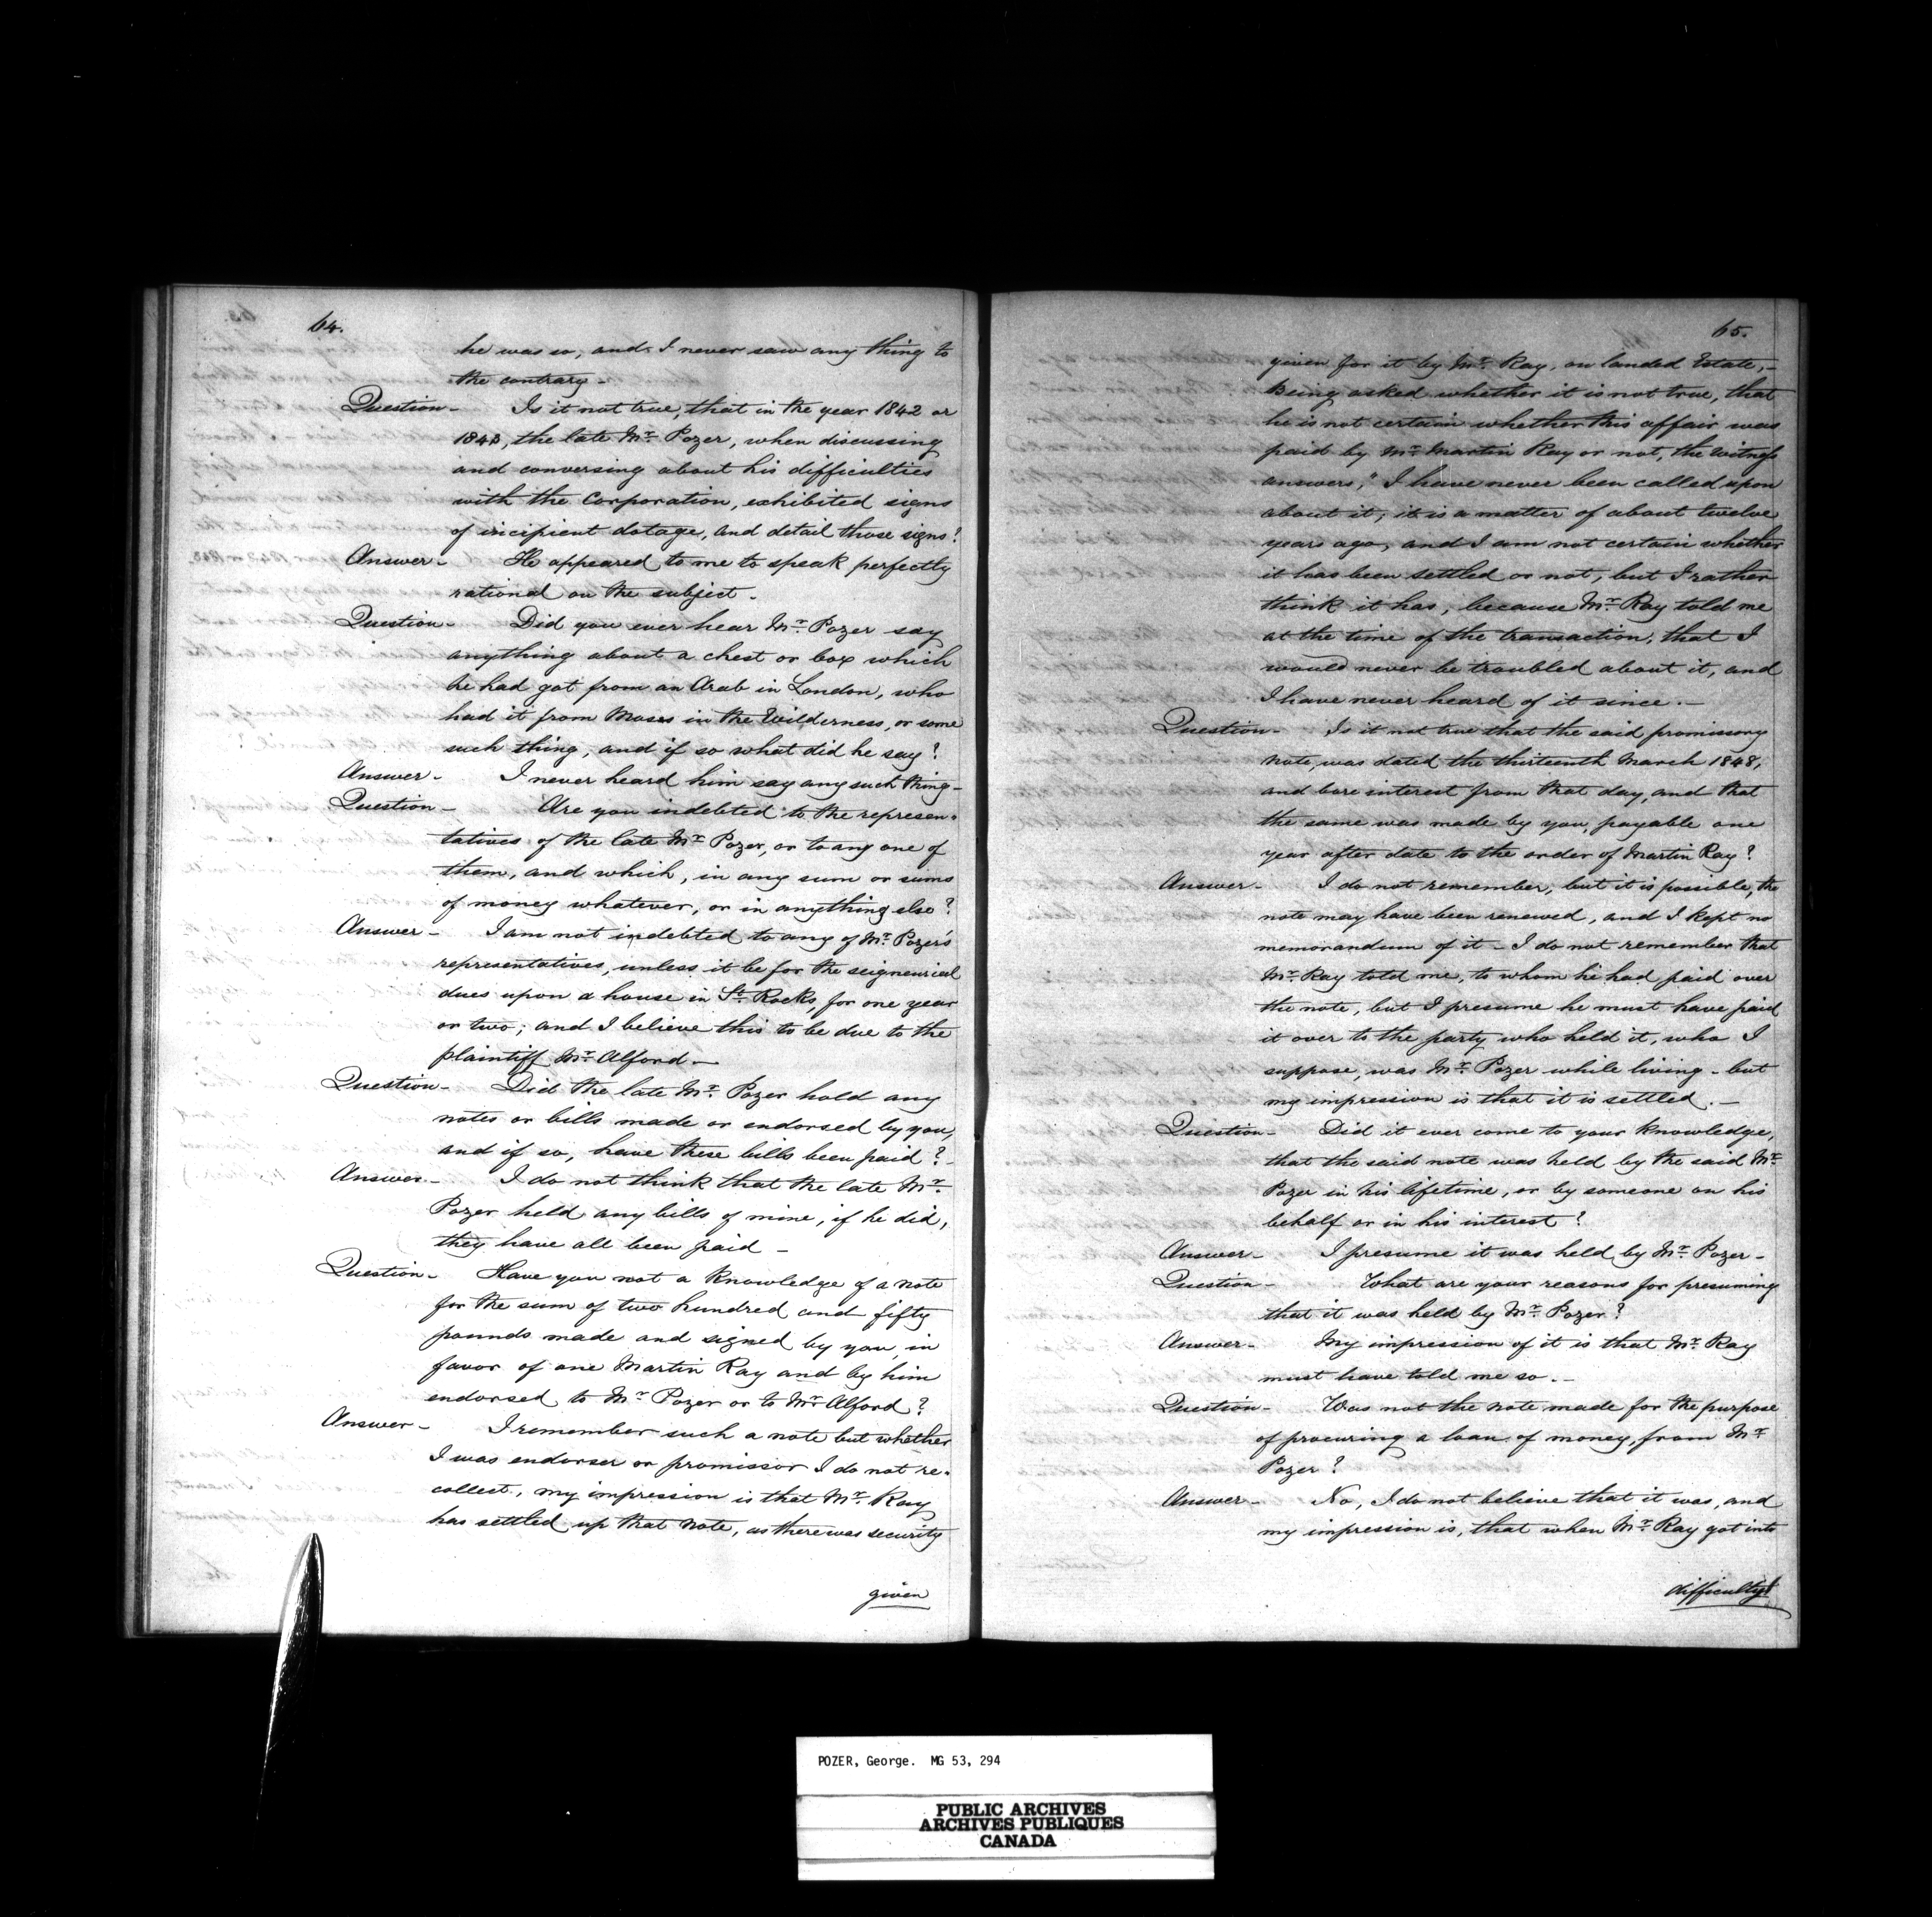 64.
he was so, and I never saw any thing to
the contrary -
Question - Is it not true, that in the year 1842 or
1843, the late Mr. Pozer, when discussing
and conversing about his difficulties
with the Corporation, exhibited signs
of incipient dotage, and detail those signs?
Answer - He appeared to me to speak perfectly
rational on the subject.
Question - Did you ever hear Mr. Pozer say
anything about a chest or box which
he had got from an Arab in London, who
had it from Moses in the Wilderness, or some
such thing, and if so what did he say?
Answer - I never heard him say any such thing -
Question - Are you indebted to the represen-
tatives of the late Mr. Pozer, or to any one of
them, and which, in any sum or sums
of money whatever, or in anything else?
Answer - I am not indebted to any of Mr. Pozer's
representatives, unless it be for the seigneurial
dues upon a house in St. Rocks, for one year
or two; and I believe this to be due to the
plaintiff Mr. Alford -
Question - Did the late Mr. Pozer hold any
notes or bills made or endorsed by you,
and if so, have these bills been paid? -
Answer - I do not think that the late Mr.
Pozer held any bills of mine, if he did,
they have all been paid -
Question - Have you not a knowledge of a note
for the sum of two hundred and fifty
pounds made and signed by you, in
favor of one Martin Ray and by him
endorsed to Mr. Pozer or to Mr. Alford?
Answer - I remember such a note but whether
I was endorser or promissor I do not re-
collect, my impression is that Mr. Ray
has settled up that note, as there was security
given
65.
given for it by Mr. Ray, on landed Estate, -
Being asked whether it is not true, that
he is not certain whether this affair was
paid by Mr. Martin Ray or not, the witness
answers, "I have never been called upon
about it; it is a matter of about twelve
years ago, and I am not certain whether
it has been settled or not, but I rather
think it has, because Mr. Ray told me
at the time of the transaction, that I
would never be troubled about it, and
I have never heard of it since. -
Question - Is it not true that the said promissory
note, was dated the thirteenth March 1848,
and bore interest from that day, and that
the same was made by you, payable one
year after date to the order of Martin Ray?
Answer - I do not remember, but it is possible, the
note may have been renewed, and I kept no
memorandum of it - I do not remember that
Mr. Ray told me, to whom he had paid over
the note, but I presume he must have paid
it over to the party who held it, who I
suppose, was Mr. Pozer while living - but
my impression is that it is settled. -
Question - Did it ever come to your knowledge,
that the said note was held by the said Mr.
Pozer in his lifetime, or by someone on his
behalf or in his interest?
Answer - I presume it was held by Mr. Pozer -
Question - What are your reasons for presuming
that it was held by Mr. Pozer?
Answer - My impression of it is that Mr. Ray
must have told me so. -
Question - Was not the note made for the purpose
of procuring a loan of money, from Mr.
Pozer?
Answer - No, I do not believe that it was, and
my impression is, that when Mr. Ray got into
difficulty
POZER, George. MG 53, 294
PUBLIC ARCHIVES
ARCHIVES PUBLIQUES
CANADA